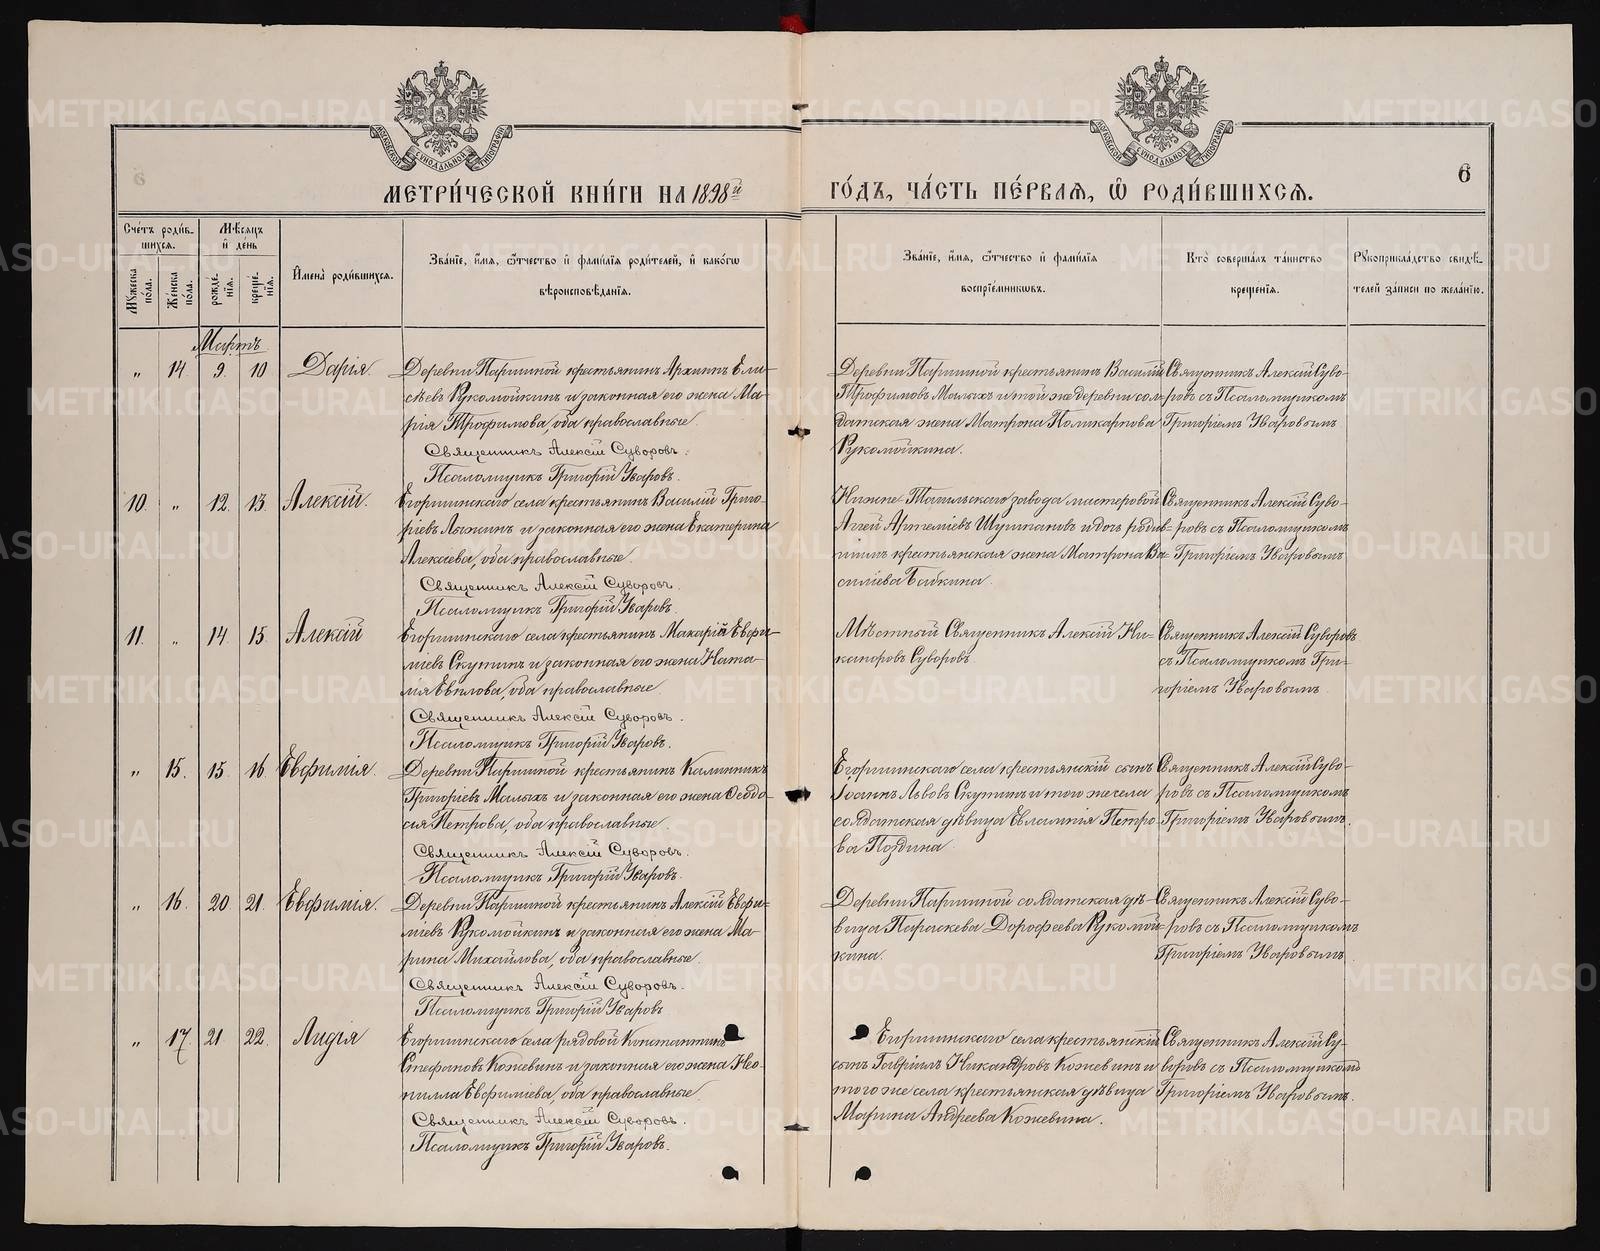 МЕТРИ́ЧЕСКОЙ КНИ́ГИ НА 1898й ГО́ДЪ, ЧА́СТЬ ПЕ́РВАѦ, Ѡ҆ РОДИ́ВШИХСѦ.
6
Сче́тъ роди́в-
шихсѧ.
Мꙋ́жеска по́ла.
Же́нска по́ла.
Мѣ́сѧцъ и҆ де́нь
рожде́-нїѧ.
креще́-нїѧ.
И҆мена̀ роди́вшихсѧ.
Зва́нїе, и҆́мѧ, ѻ҆́тчество и҆ фамѝлїѧ роди́телей, и҆ како́гѡ
вѣроисповѣ́данїѧ.
Зва́нїе, и҆́мѧ, ѻ҆́тчество и҆ фамѝлїѧ
воспрїе́мникѡвъ.
Кто̀ соверша́лъ та́инство
креще́нїѧ.
Рꙋкоприкла́дство свидѣ́-
телей за́писи по жела́нїю.
Мартъ
„ 14 9. 10 Дарія.
Деревни Паршиной крестьянинъ Архипъ Ели-
сѣевъ Рукомойкинъ и законная его жена Ма-
рія Трофимова, оба православные.
Священникъ Алексій Суворовъ.
Псаломщикъ Григорій Уваровъ.
Деревни Паршиной крестьянинъ Василій
Трофимовъ Малыхъ и той же деревни сол-
датская жена Матрона Поликарпова
Рукомойкина.
Священникъ Алексій Суво-
ровъ съ Псаломщикомъ
Григоріемъ Уваровымъ
10. „ 12. 13. Алексій.
Егоршинскаго села крестьянинъ Василій Григо-
ріевъ Лыжинъ и законная его жена Екатерина
Алексѣева, оба православные.
Священникъ Алексій Суворовъ.
Псаломщикъ Григорій Уваровъ.
Нижне-Тагильскаго завода мастеровой
Аггей Артеміевъ Шушпановъ и дочь родив-
шимъ крестьянская жена Матрона Ва-
силіева Бабкина.
Священникъ Алексій Суво-
ровъ съ Псаломщикомъ
Григоріемъ Уваровымъ
11. „ 14. 15. Алексій
Егоршинскаго села крестьянинъ Макарій Евфи-
міевъ Скутинъ и законная его жена Ната-
лія Евплова, оба православные.
Священникъ Алексій Суворовъ.
Псаломщикъ Григорій Уваровъ.
Мѣстный Священникъ Алексій Ни-
каноровъ Суворовъ
Священникъ Алексій Суворовъ
съ Псаломщикомъ Гри-
горіемъ Уваровымъ.
„ 15. 15. 16. Евфимія.
Деревни Паршиной крестьянинъ Калинникъ
Григоріевъ Малыхъ и законная его жена Ѳеодо-
сія Петрова, оба православные.
Священникъ Алексій Суворовъ.
Псаломщикъ Григорій Уваровъ.
Егоршинскаго села крестьянскій сынъ
Іоаннъ Львовъ Скутинъ и того же села
солдатская дѣвица Евлампія Петро-
ва Поздина.
Священникъ Алексій Суво-
ровъ съ Псаломщикомъ
Григоріемъ Уваровымъ.
„ 16. 20 21. Евфимія.
Деревни Паршиной крестьянинъ Алексій Евфи-
міевъ Рукомойкинъ и законная его жена Ма-
рина Михайлова, оба православные.
Священникъ Алексій Суворовъ.
Псаломщикъ Григорій Уваровъ
Деревни Паршиной солдатская дѣ-
вица Параскева Дорофеева Рукомой-
кина.
Священникъ Алексій Суво-
ровъ съ Псаломщикомъ
Григоріемъ Уваровымъ
„ 17. 21. 22. Лидія
Егоршинскаго села рядовой Константинъ
Стефановъ Кожевинъ и законная его жена Нео-
нилла Евфиміева, оба православные.
Священникъ Алексій Суворовъ.
Псаломщикъ Григорій Уваровъ.
Егоршинскаго села крестьянскій
сынъ Гавріилъ Никандровъ Кожевинъ и
того же села крестьянская дѣвица
Марина Андреева Кожевина.
Священникъ Алексій Су-
воровъ съ Псаломщикомъ
Григоріемъ Уваровымъ.